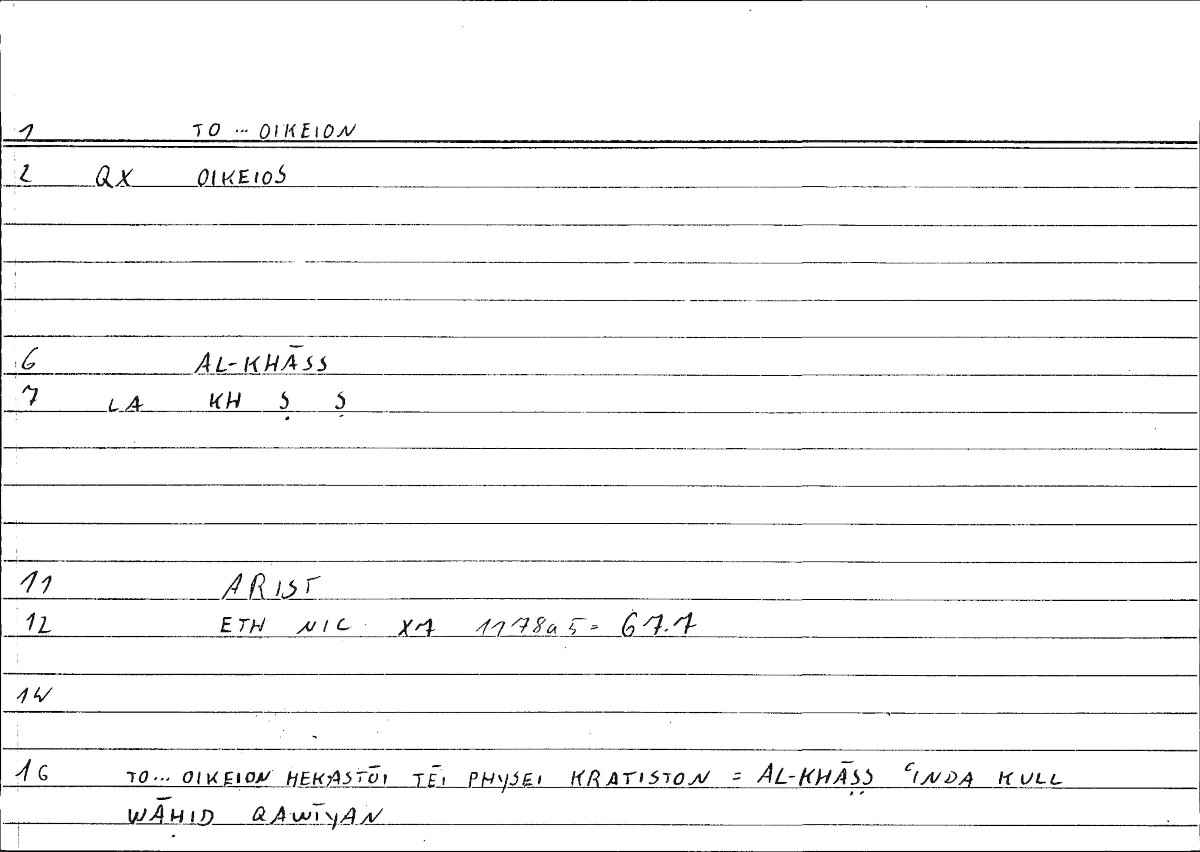 1 TO ... OIKEION
2 QX OIKEIOS
6 AL-KHĀSS
7 LA KH Ṣ Ṣ
11 ARIST
12 ETH NIC X7 1178a5 = 67.7
14
16 TO... OIKEION HEKASTŌI TĒI PHYSEI KRATISTON = AL-KHĀṢṢ ʿINDA KULL
WĀḤID QAWĪYAN